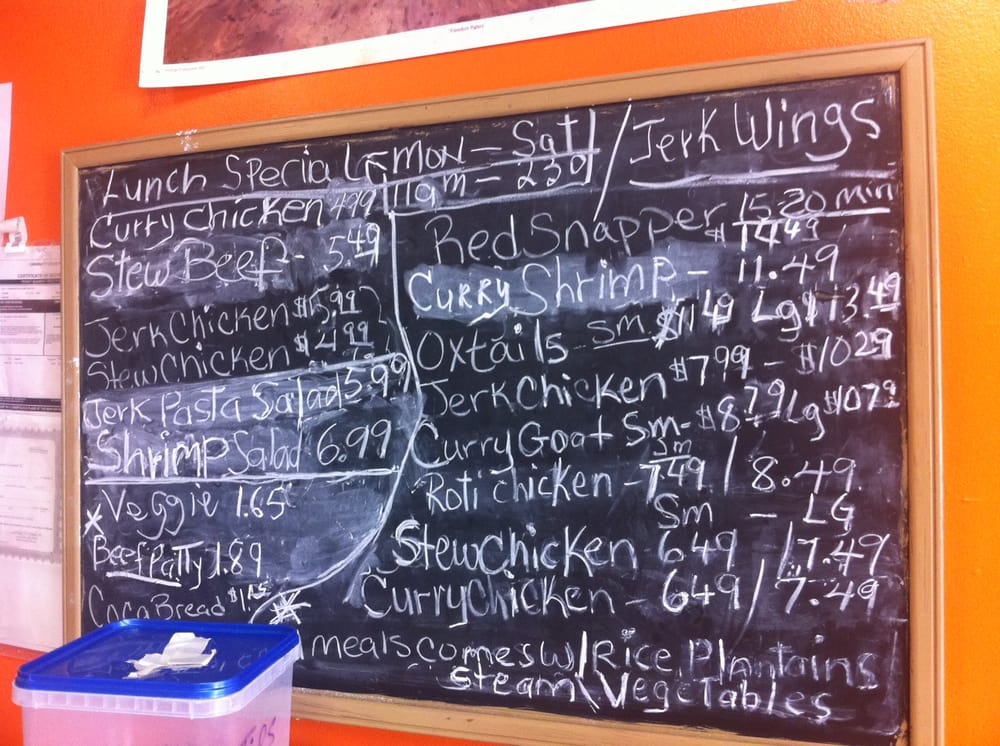 Lunch Special Mon - Sat / Jerk Wings
11am - 230
Curry chicken 499
Stew Beef - 5.49
Jerk Chicken $5.99
Stew Chicken $4.99
Jerk Pasta Salad 5.99
Shrimp Salad 6.99
* Veggie 1.65
Beef Patty 1.89
Coco Bread
15-20 min
Red Snapper $14.49
Curry Shrimp - 11.49
Oxtails Sm $11.49 Lg $13.49
Jerk Chicken $7.99 - $1029
Curry Goat Sm- $8.79 Lg $1079
Sm
Roti chicken - 7.49 / 8.49
Sm - LG
Stew Chicken 649 / 7.49
Curry Chicken - 649 / 7.49
* meals comes w/ Rice Plantains
Steam Vegetables